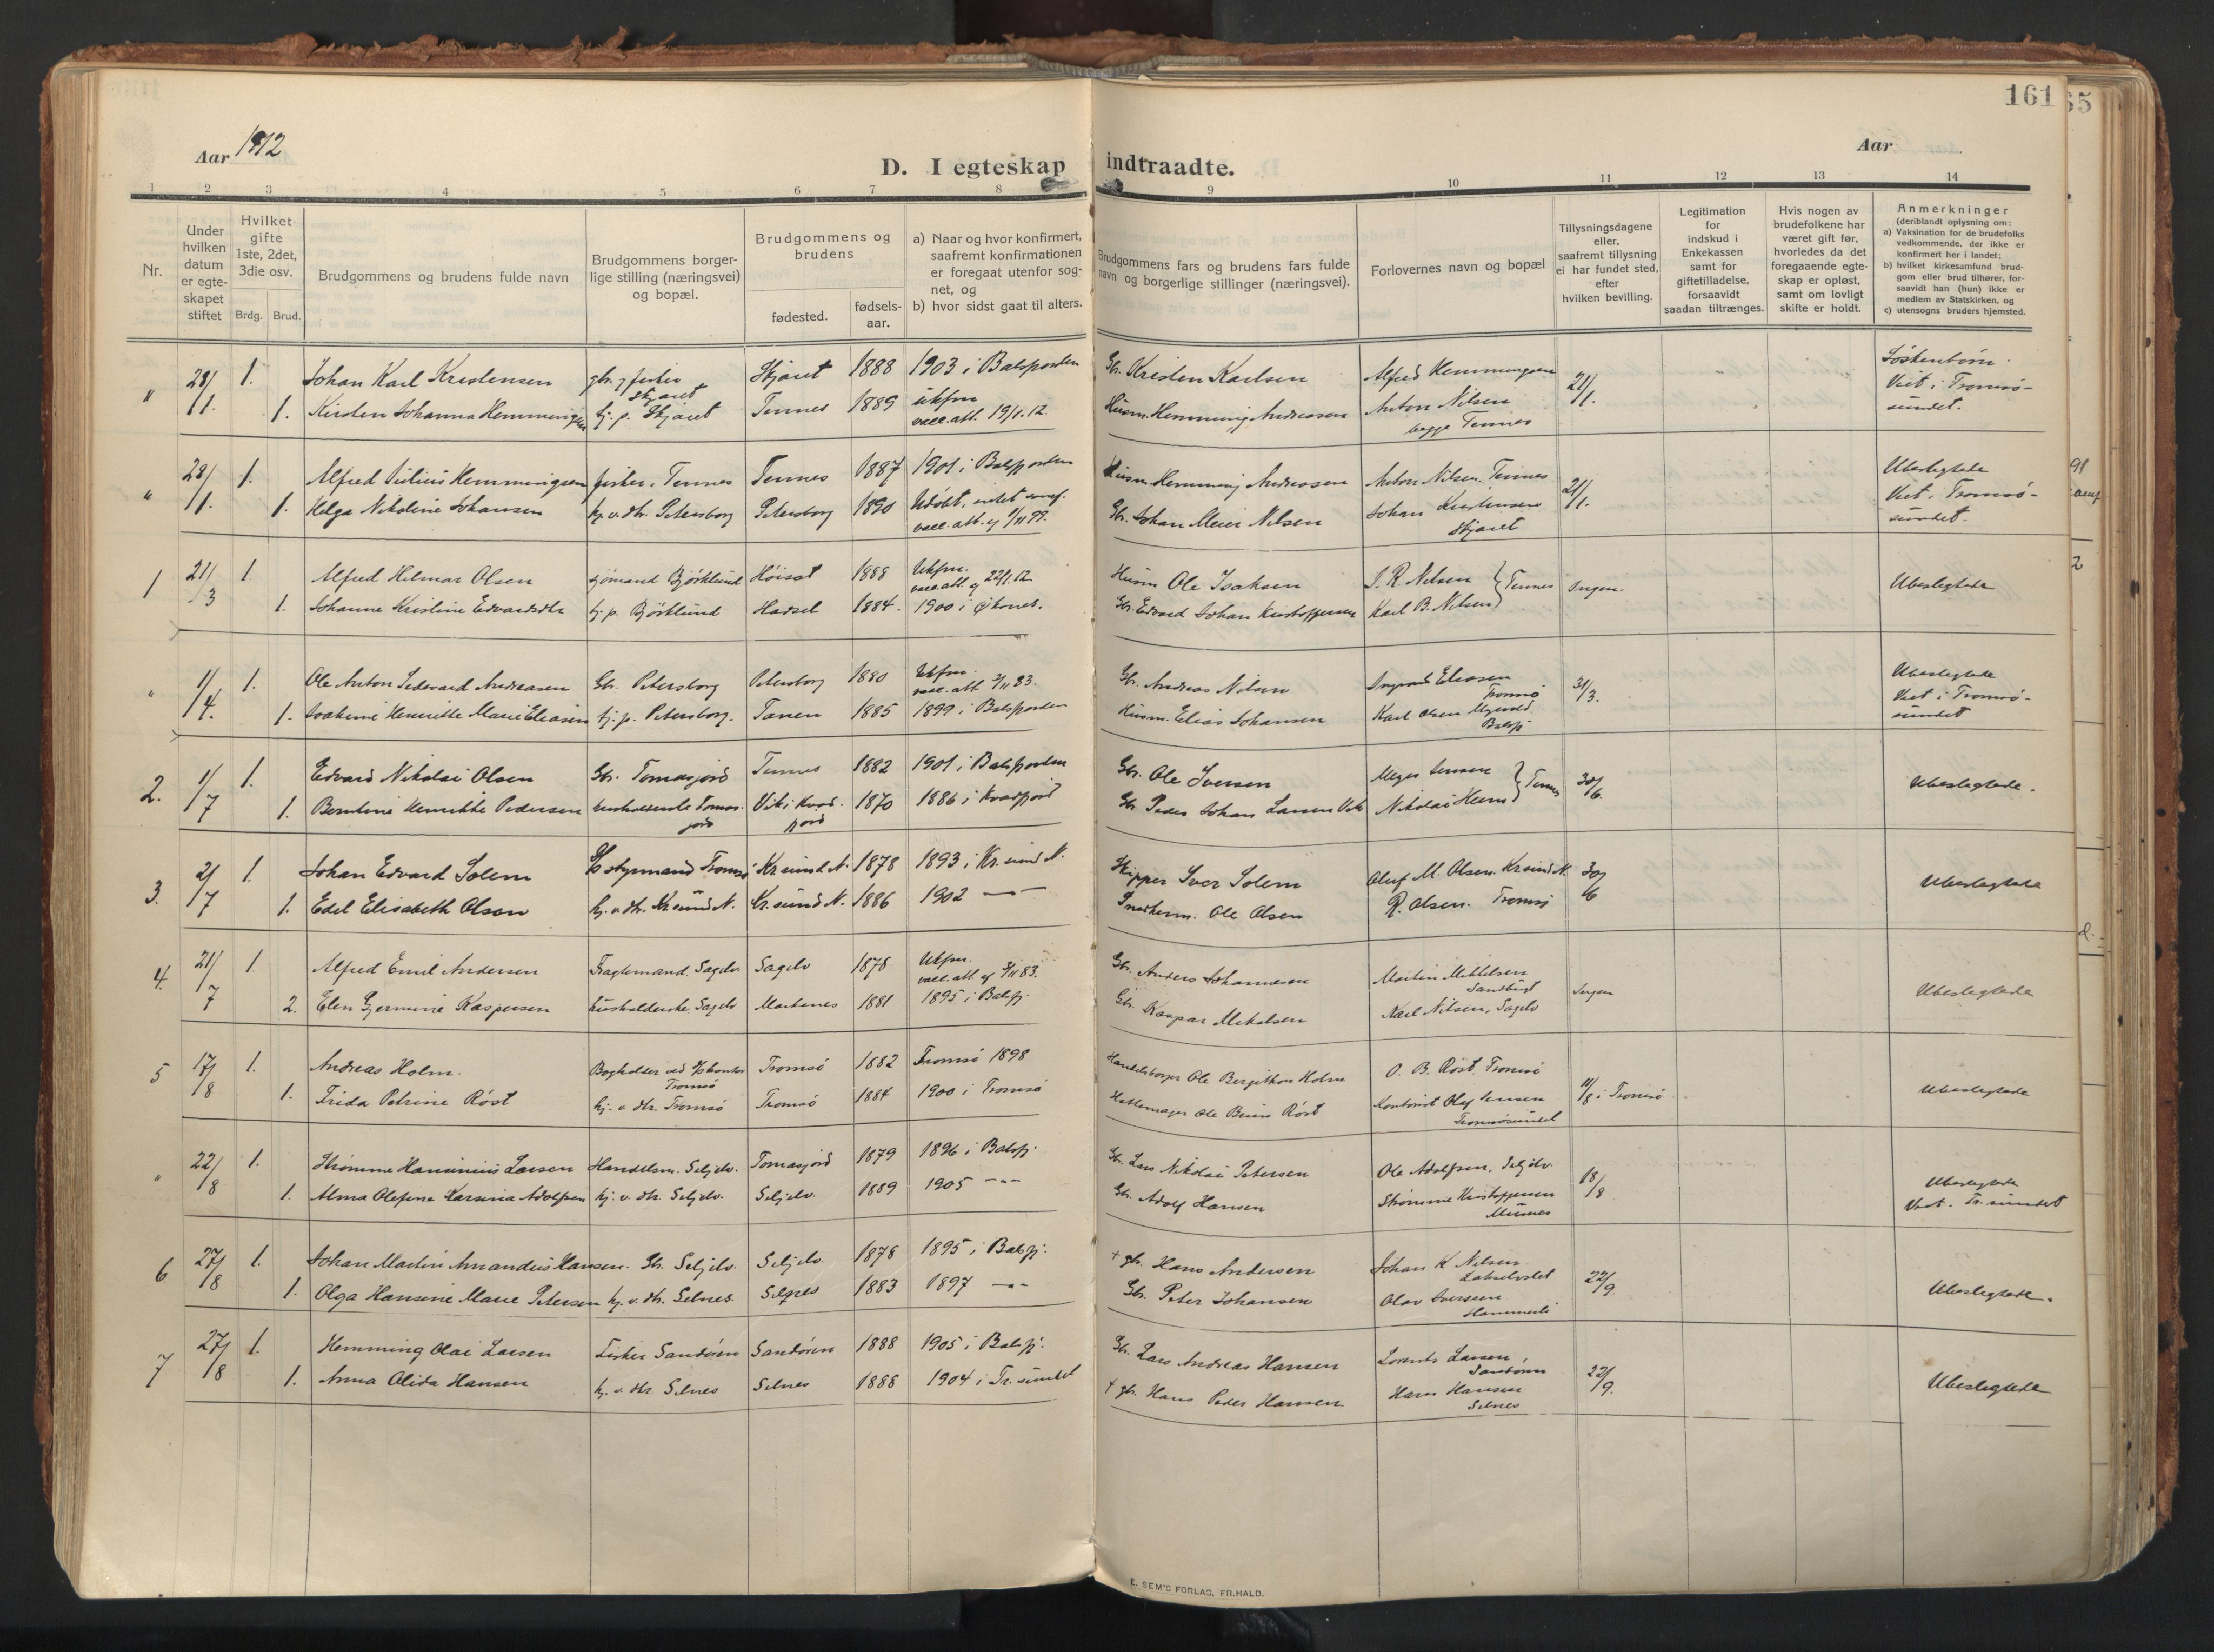 161
Aar 1912
Aar
D. I egteskap indtraadte.
1 2 3 4 5 6 7 8 9 10 11 12 13 14
Nr.
Under hvilken datum er egteskapet stiftet
Hvilket gifte 1ste, 2det, 3die osv.
Brdg. Brud.
Brudgommens og brudens fulde navn
Brudgommens borgerlige stilling (næringsvei) og bopæl.
Brudgommens og brudens
fødested.
fødselsaar.
a) Naar og hvor konfirmert, saafremt konfirmationen er foregaat utenfor sognet, og
b) hvor sidst gaat til alters.
Brudgommens fars og brudens fars fulde navn og borgerlige stillinger (næringsvei).
Forlovernes navn og bopæl
Tillysningsdagene eller, saafremt tillysning ei har fundet sted, efter hvilken bevilling.
Legitimation for indskud i Enkekassen samt for giftetilladelse, forsaavidt saadan tiltrænges.
Hvis nogen av brudefolkene har været gift før, hvorledes da det foregaaende egteskap er opløst, samt om lovligt skifte er holdt.
Anmerkninger
(deriblandt oplysning om:
a) Vaksination for de brudefolks vedkommende, der ikke er konfirmert her i landet;
b) hvilket kirkesamfund brudgom eller brud tilhører, forsaavidt han (hun) ikke er medlem av Statskirken, og
c) utensogns bruders hjemsted.
" 28/1. 1. Johan Karl Kristensen gbr. og fisker Skjaret Skjaret 1888 1903 i Balsfjorden Gbr. Kristen Karlsen Alfred Hemmingsen 21/1. Søskenbörn.
1. Kirsten Johanna Hemmingsen hj. p. Skjaret Tennes 1889 ukfm vacc. att. 19/1.12. Husm. Hemming Andreassen Anton Nilsen begge Tennes Viet i Tromsøsundet.
" 28/1. 1. Alfred Julius Hemmingsen fisker. Tennes Tennes 1887 1901 i Balsfjorden Husm. Hemming Andreassen Anton Nilsen. Tennes 21/1. Ubeslegtede
1. Helga Nikoline Johansen hj. v. dtr. Petersborg Petersborg 1890 Udöbt, vacc. att. Gbr. Johan Meier Nilsen Johan Kristensen Skjaret Viet i Tromsøsundet.
1 21/3 1. Alfred Hilmar Olsen sjömand Björklund Höisat 1888 Ukfm. vacc. att. af 22/1.12. Husm Ole Isaksen J. R. Nilsen Tennes Ingen. Ubeslegtede
1. Johanne Kristine Edvardsdtr hj. p. Björklund Hadsel 1884. 1900 i Øksnes. Gbr. Edvard Johan Kristoffersen Karl B. Nilsen
" 1/4. 1. Ole Anton Sedevard Andreasen Gbr. Petersborg Petersborg 1880 Ukfm. vacc. att. 3/11 83. Gbr. Andreas Nilsen Eliasen Tromsö 31/3. Ubeslegtede
1. Joakime Henrikke Marie Eliasen hj. p. Petersborg. Tanen 1885 1899 i Balsfjorden Husm. Elias Johansen Karl Olsen Balsfj Viet i Tromsøsundet
2. 1/7 1. Edvard Nikolai Olsen Gbr. Tomasjord Tennes 1882 1901 i Balsfjorden Gbr. Ole Iversen Meyer Jensen Tennes 30/6. Ubeslegtede.
1. Berntine Henrikke Pedersen husholderske Tomasjord Vik i Kvædfjord 1870 1886 i Kvædfjord Gbr Peder Johan Larsen Vik Nikolai Heim
3. 2/7 1. Johan Edvard Solem styrmand Tromsö Kr.sund N. 1878 1893 i Kr.sund N. Skipper Iver Solem Oluf M. Olsen. Kr.sund N. 30/6 Ubeslegtede
1. Edel Elisabeth Olsen hj. v. dtr. Kr.sund N. Kr.sund N. 1886 1902 —"— Snedkerm. Ole Olsen R. Olsen. Tromsö
4. 21/7 1. Alfred Emil Andersen Fragtemand Sagelv Sagelv 1878 Ukfm. vacc. att. af 3/11 83. Gbr. Anders Johannesen Martin Mikkelsen Sandbugt Ingen Ubeslegtede
2. Elen Germine Kaspersen husholderske Sagelv Markenes 1881 1895 i Balsfj. Gbr. Kaspar Mikalsen Karl Nilsen, Sagelv
5 17/8 1. Andreas Holm. Bogholder ved Tromsö Tromsö 1882 Tromsö 1898 Handelsborger Ole Bergithon Holm O. B. Röst. Tromsö 11/8 i Tromsö Ubeslegtede
1. Frida Petrine Röst hj. v. dtr. Tromsö Tromsö 1884 1900 i Tromsö Hattemager Ole Röst Kontorist Olaf Jensen Tromsösundet
" 22/8 1. Strömme Hansinius Larsen Handelsm. Seljelv. Tomasjord 1879 1896 i Balsfj. Gbr. Lars Nikolai Petersen Ole Adolfsen. Seljelv. 18/8 Ubeslegtede
1. Alma Olefine Karsinia Adolfsen hj. v. dtr. Seljelv. Seljelv. 1889 1905 —"— Gbr. Adolf Hansen Strömme Kristoffersen Viet. Tr.sundet
6 27/8 1. Johan Martin Amandus Hansen. Gbr. Seljelv. Seljelv. 1878 1895 i Balsfj. + gbr. Hans Andersen Johan K Nilsen 22/9. Ubeslegtede.
1. Olga Hansine Marie Petersen hj. v. dtr. Selnes. Selnes 1883 1897 —"— Gbr. Peter Johansen Olav Iversen
7 27/8 1. Hemming Olai Larsen Fisker Sandören Sandören 1888 1905 i Balsfj. Gbr. Lars Andreas Hansen Lorents Larsen Sandören 22/9. Ubeslegtede
1. Anna Olida Hansen hj. v. dtr. Selnes Selnes 1888 1904 i Tr.sundet + gbr. Hans Peder Hansen Hans Hansen Selnes
E. SEM'S FORLAG, FR.HALD.